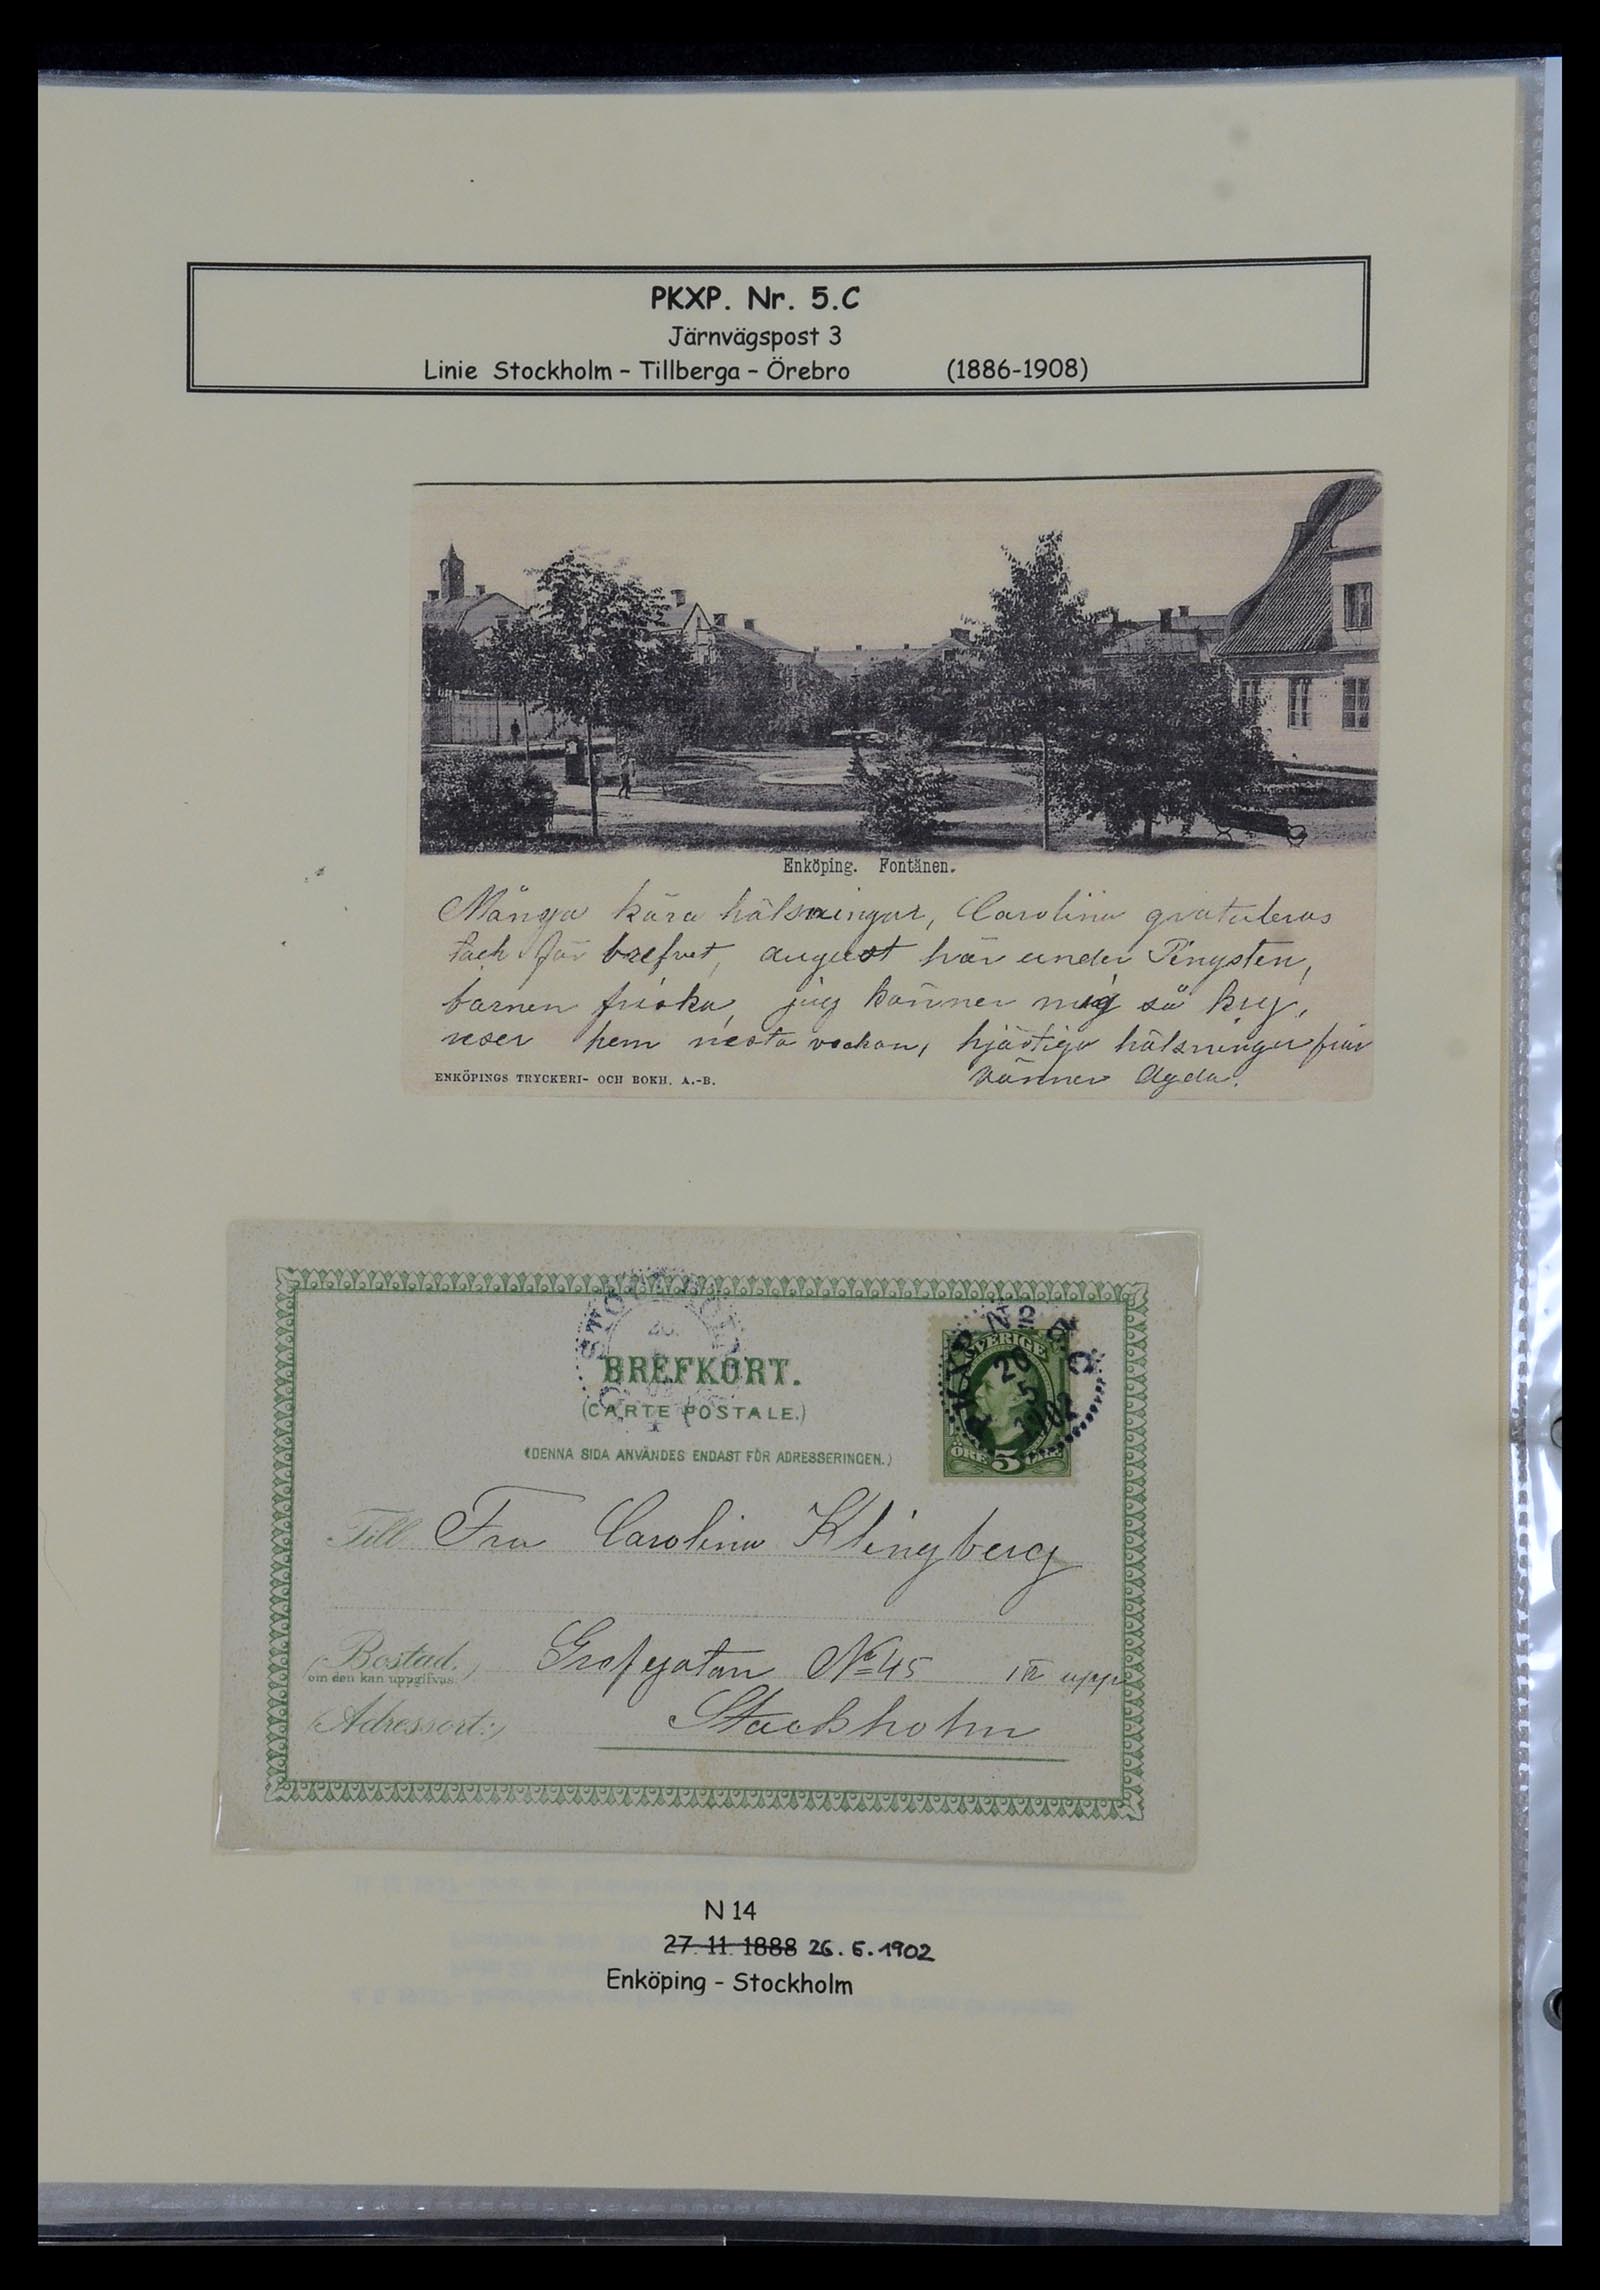 PKXP. Nr. 5.C
Järnvägspost 3
Linie Stockholm – Tillberga – Örebro (1886-1908)
Enköping. Fontänen.
Många kära hälsningar, Carolina gratuleras
tack för brefvet, august här under Pingsten,
barnen friska, jag känner mig så kry,
reser hem nästa veckan, hjärtiga hälsningar från
vännen Agda.
ENKÖPINGS TRYCKERI- OCH BOKH. A.-B.
BREFKORT.
(CARTE POSTALE.)
(DENNA SIDA ANVÄNDES ENDAST FÖR ADRESSERINGEN.)
SVERIGE
ÖRE 5
PKXP Nr 5 C
1902
Till Fru Carolina Klingberg
(Bostad,) Grefgatan No 45 III upp
om den kan uppgifvas.
(Adressort:) Stockholm
N 14
27. 11. 1888 26. 5. 1902
Enköping - Stockholm